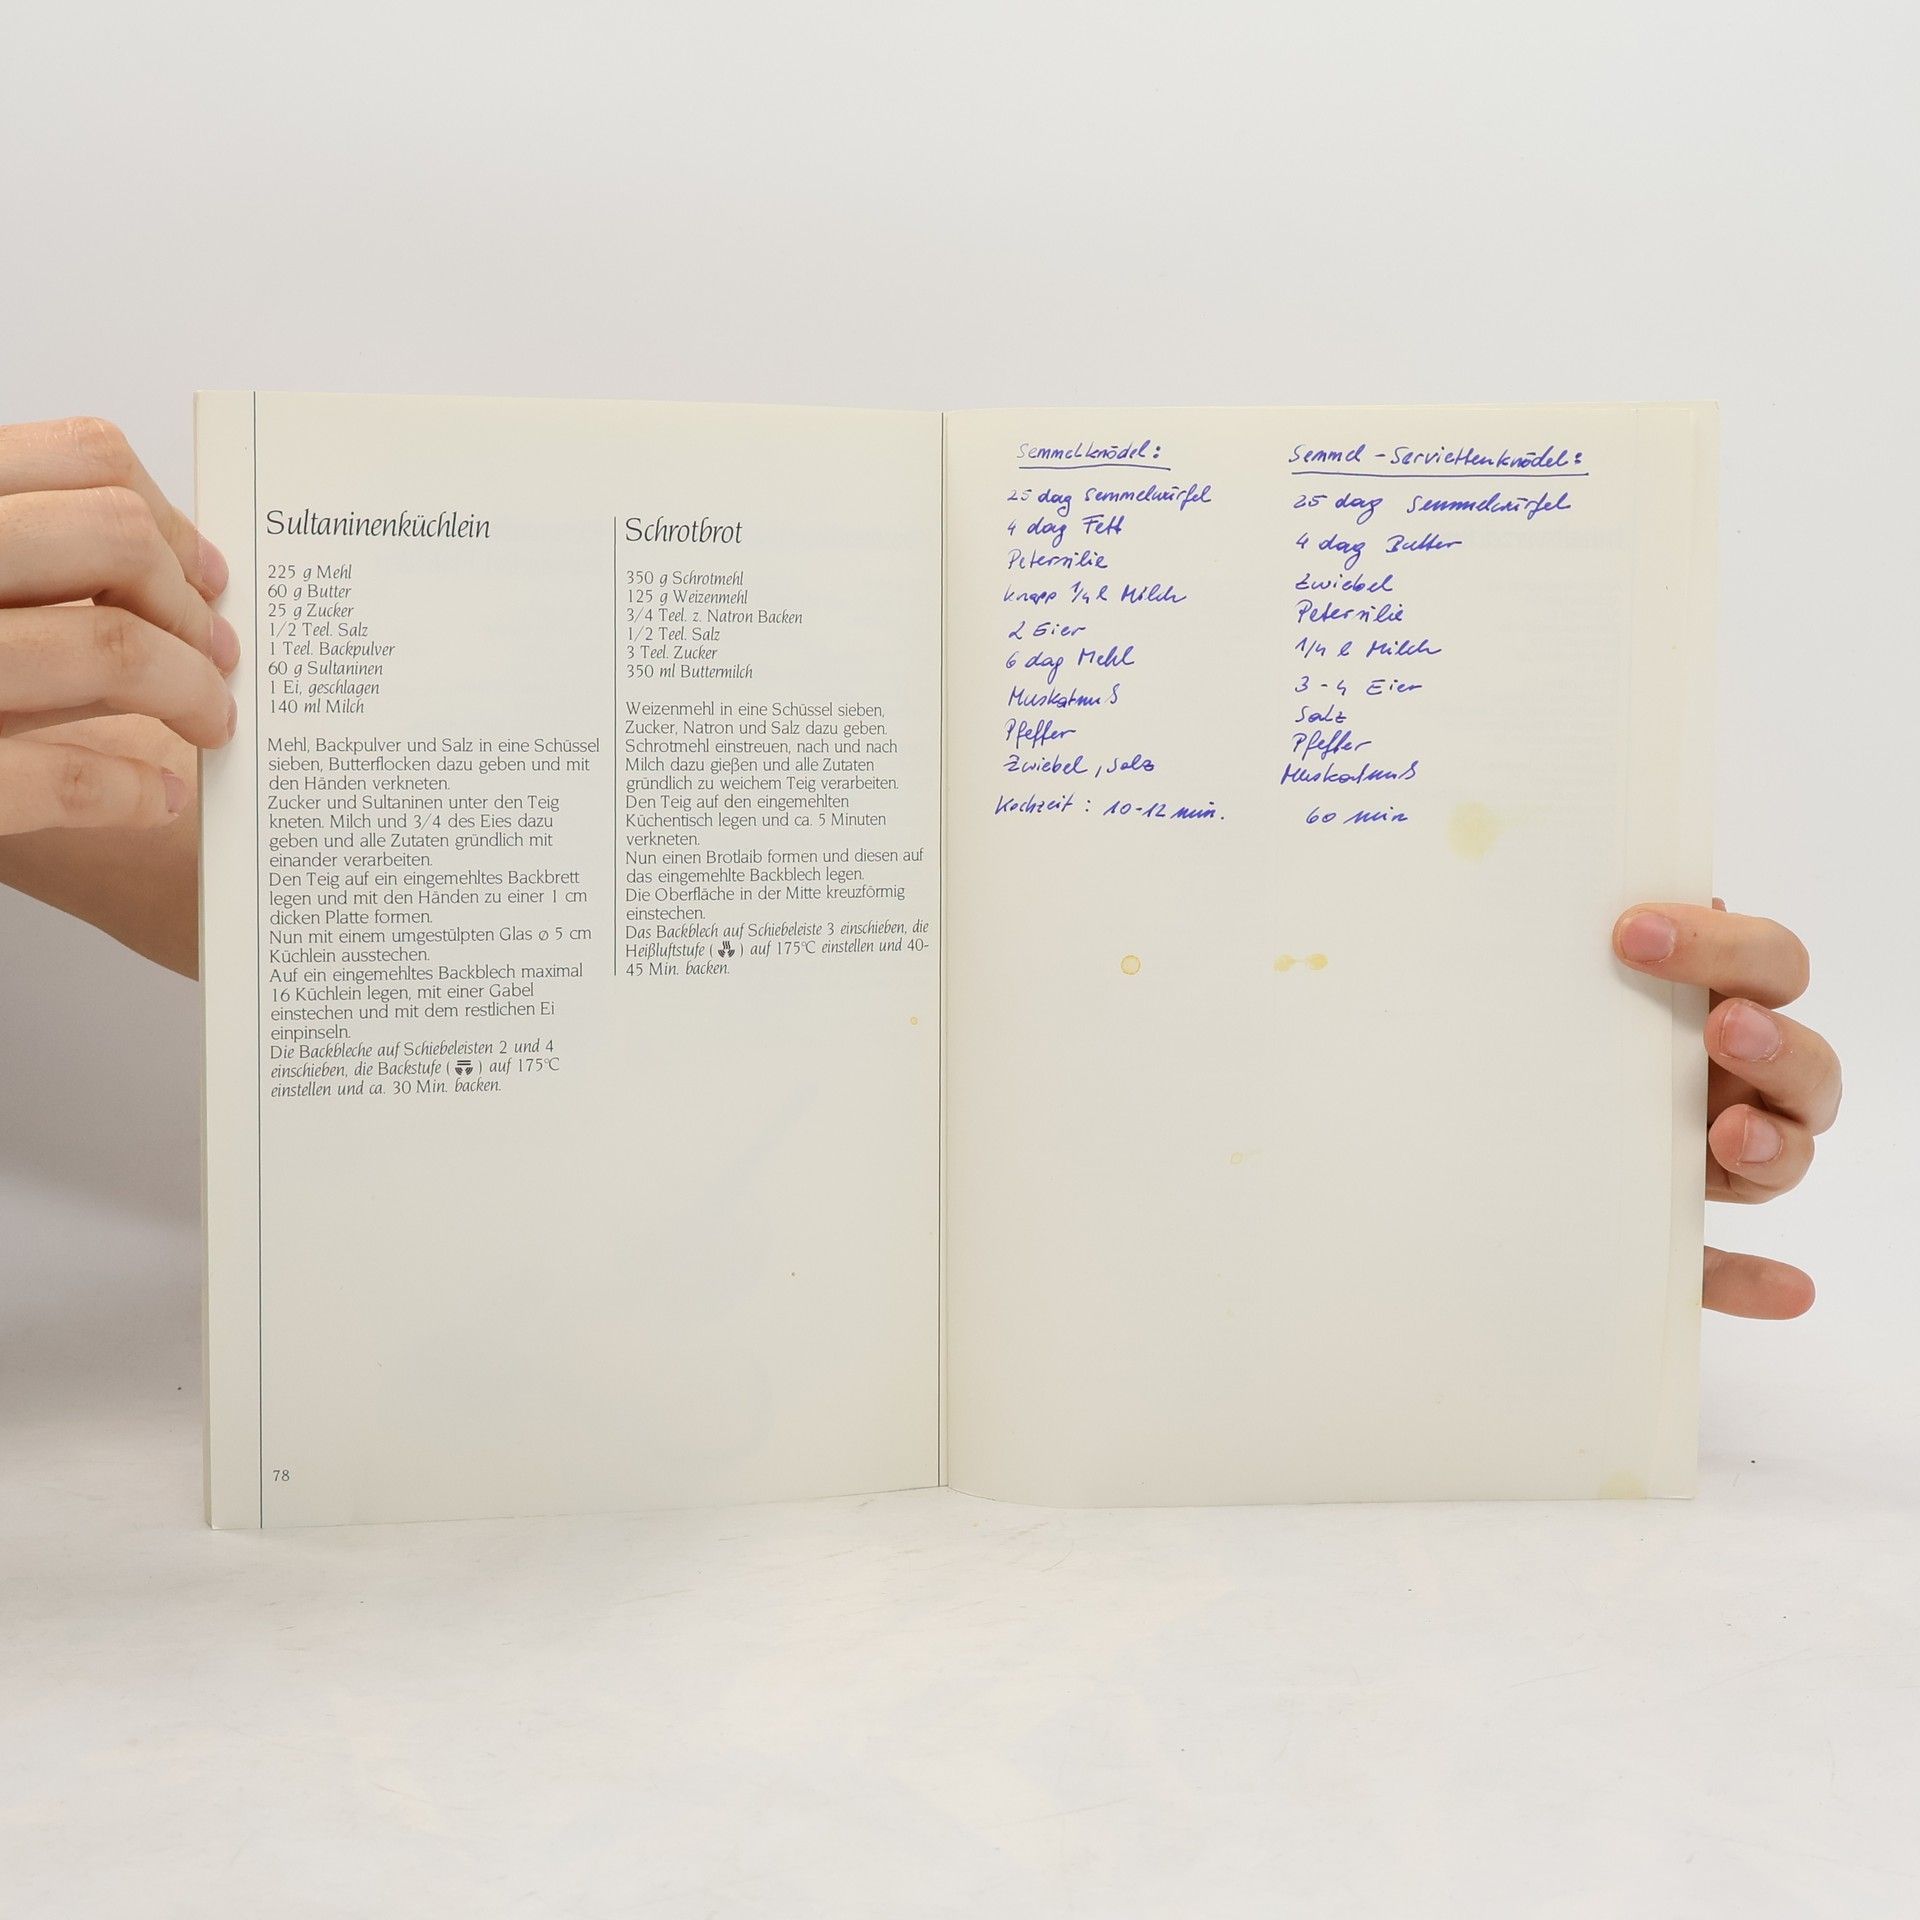 Sultaninenküchlein
225 g Mehl
60 g Butter
25 g Zucker
1/2 Teel. Salz
1 Teel. Backpulver
60 g Sultaninen
1 Ei, geschlagen
140 ml Milch
Mehl, Backpulver und Salz in eine Schüssel
sieben, Butterflocken dazu geben und mit
den Händen verkneten.
Zucker und Sultaninen unter den Teig
kneten. Milch und 3/4 des Eies dazu
geben und alle Zutaten gründlich mit
einander verarbeiten.
Den Teig auf ein eingemehltes Backbrett
legen und mit den Händen zu einer 1 cm
dicken Platte formen.
Nun mit einem umgestülpten Glas ø 5 cm
Küchlein ausstechen.
Auf ein eingemehltes Backblech maximal
16 Küchlein legen, mit einer Gabel
einstechen und mit dem restlichen Ei
einpinseln.
Die Backbleche auf Schiebeleisten 2 und 4
einschieben, die Backstufe ( ) auf 175°C
einstellen und ca. 30 Min. backen.
78
Schrotbrot
350 g Schrotmehl
125 g Weizenmehl
3/4 Teel. z. Natron Backen
1/2 Teel. Salz
3 Teel. Zucker
350 ml Buttermilch
Weizenmehl in eine Schüssel sieben,
Zucker, Natron und Salz dazu geben.
Schrotmehl einstreuen, nach und nach
Milch dazu gießen und alle Zutaten
gründlich zu weichem Teig verarbeiten.
Den Teig auf den eingemehlten
Küchentisch legen und ca. 5 Minuten
verkneten.
Nun einen Brotlaib formen und diesen auf
das eingemehlte Backblech legen.
Die Oberfläche in der Mitte kreuzförmig
einstechen.
Das Backblech auf Schiebeleiste 3 einschieben, die
Heißluftstufe ( ) auf 175°C einstellen und 40-
45 Min. backen.
Semmelknödel:
25 dag Semmelwürfel
4 dag Fett
Petersilie
knapp 1/4 l Milch
2 Eier
6 dag Mehl
Muskatnuß
Pfeffer
Zwiebel, Salz
Kochzeit: 10-12 min.
Semmel - Serviettenknödel:
25 dag Semmelwürfel
4 dag Butter
Zwiebel
Petersilie
1/4 l Milch
3 - 4 Eier
Salz
Pfeffer
Muskatnuß
60 min